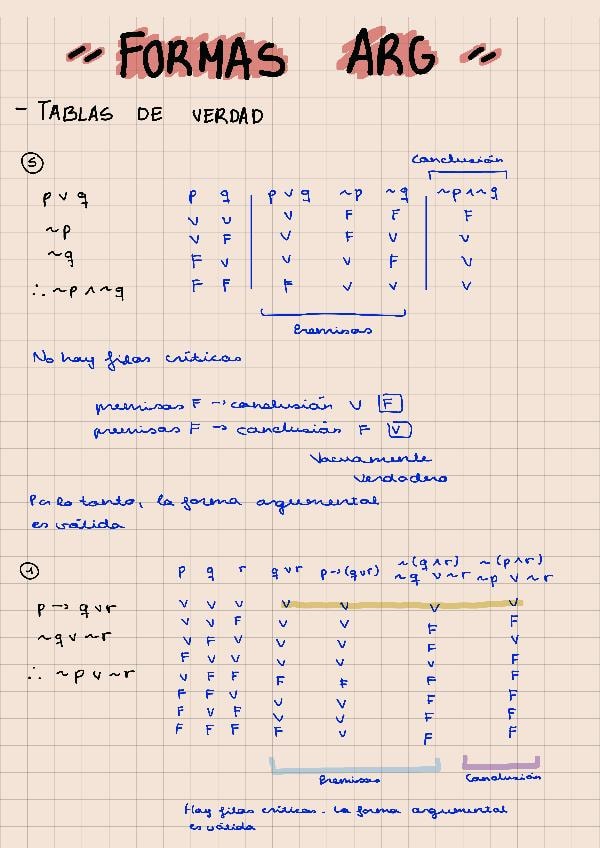 " FORMAS ARG "
- TABLAS DE VERDAD
⑤
Conclusión
p ∨ q p q p ∨ q ~p ~q ~p ∧ ~q
~p V V V F F F
~q V F V F V V
∴ ~p ∧ ~q F V V V F V
F F F V V V
Premisas
No hay filas críticas
premisas F → conclusión V F
premisas F → conclusión F V
Vacuamente
verdadero
Por lo tanto, la forma argumental
es válida
①
~(q ∧ r) ~(p ∧ r)
p q r q ∨ r p → (q ∨ r) ~q ∨ ~r ~p ∨ ~r
p → q ∨ r
~q ∨ ~r
∴ ~p ∨ ~r
V V V V V V V
V V F V V F F
V F V V V F V
F V V V V V F
V F F F F F F
F F V V V F F
F V F V V F F
F F F F V F F
Premisas Conclusión
Hay filas críticas. La forma argumental
es válida